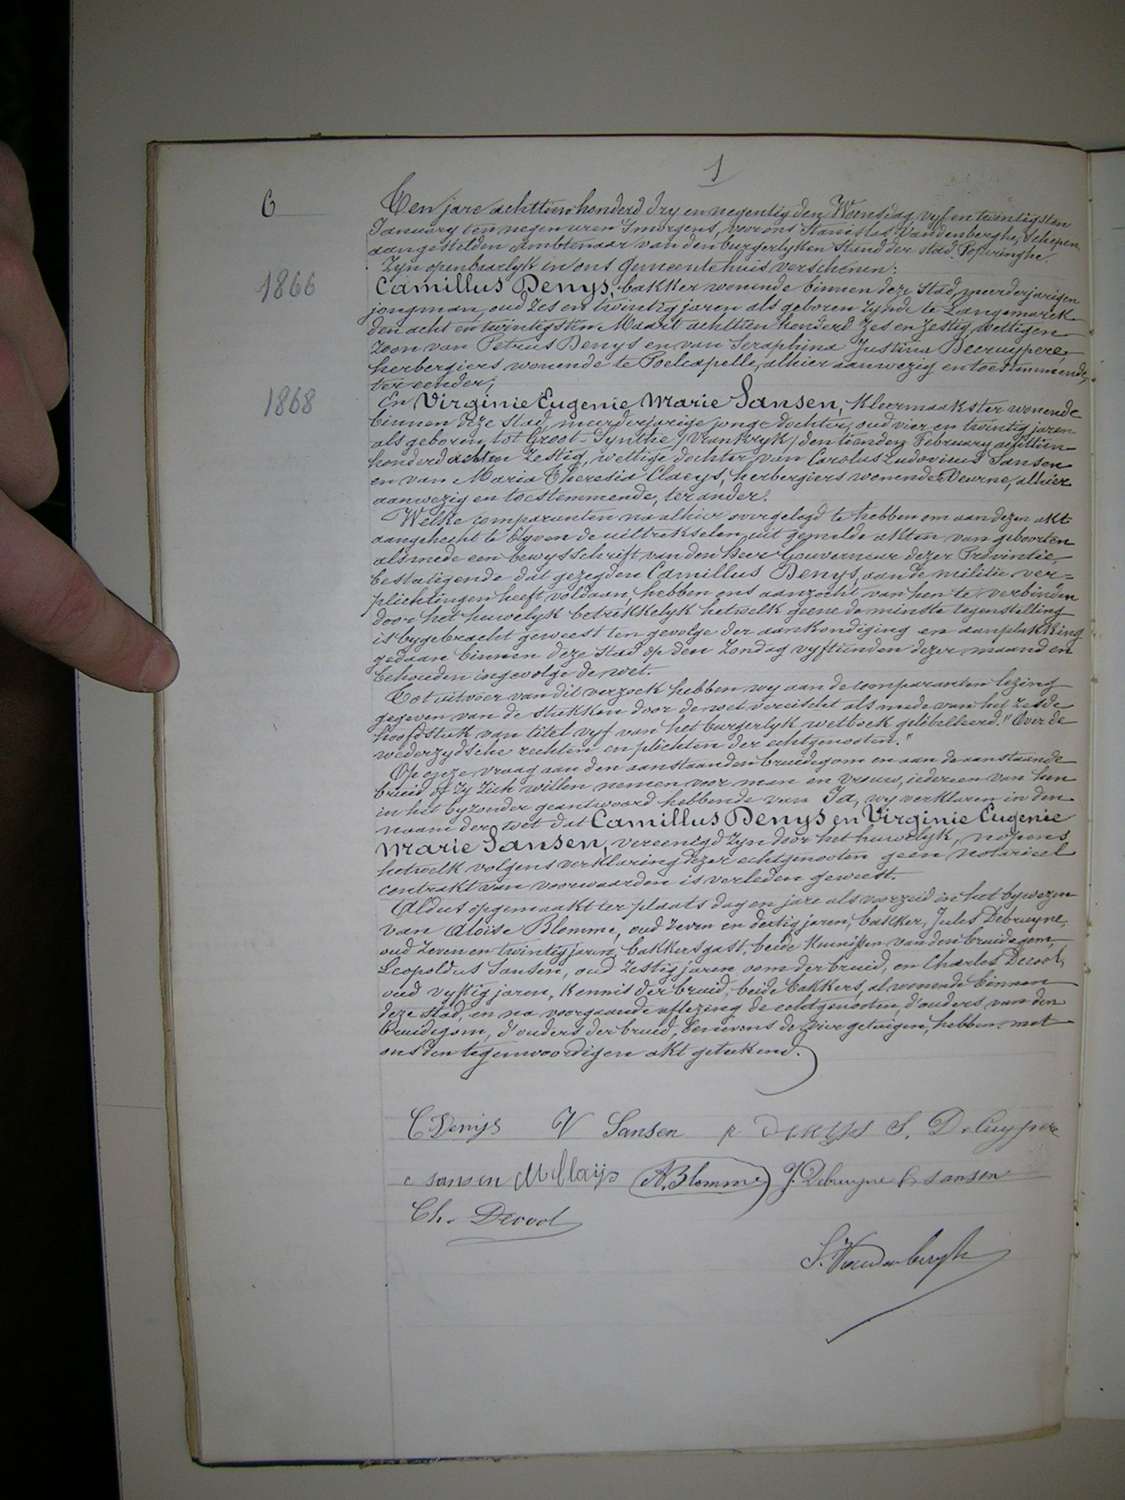 1
6
Ten jare achttien honderd dry en negentig den Woensdag vyf en twintigsten
January ten negen uren 's morgens, voor ons Stanislas Vandenberghe, Schepen
aangestelden Ambtenaar van den burgerlyken Stand der stad Poperinghe
zyn openbaarlyk in ons Gemeentehuis verschenen:
1866
Camillus Denys, bakker wonende binnen deze Stad, meerderjarigen
jongman, oud zes en twintig jaren als geboren zynde te Langemarck
den acht en twintigsten Maart achttien honderd zes en zestig, wettigen
zoon van Petrus Denys en van Seraphina Justina Decruypere,
herbergiers wonende te Poelcapelle, alhier aanwezig en toestemmende,
ter eender;
1868
En Virginie Eugenie Marie Sansen, kleermaakster wonende
binnen deze Stad, meerderjarige jonge dochter, oud vier en twintig jaren
als geboren tot Groot-Synthe (Vrankryk) den tienden February achttien
honderd achten zestig, wettige dochter van Carolus Ludovicus Sansen
en van Maria Theresia Claeys, herbergiers wonende Veurne, alhier
aanwezig en toestemmende, ter ander.
Welke comparanten na alhier overgelegd te hebben om aan dezen akt
aangehecht te blyven de uittrekselen uit gemelde akten van geboorten
alsmede een bewysschrift van den Heer Gouverneur dezer Provintie,
bestatigende dat gezegden Camillus Denys, aan de militie ver=
plichtingen heeft voldaan, hebben ons aanzocht van hen te verbinden
door het huwelyk betrekkelyk hetwelk geene de minste tegenstelling
is bygebracht geweest ten gevolge der aankondiging en aanplakking
gedaan binnen deze Stad op den Zondag vyftienden dezer maand en
behouden ingevolge de wet.
Tot uitvoer van dit verzoek hebben wy aan de comparanten lezing
gegeven van de stukken door de wet vereischt alsmede van het zesde
hoofdstuk van titel vyf van het burgerlyk wetboek getebelleerd "Over de
wederzydsche rechten en plichten der echtgenooten."
Op onze vraag aan den aanstaanden bruidegom en aan de aanstaande
bruid of zy zich willen nemen voor man en vrouw, iedereen van hen
in het byzonder geantwoord hebbende van Ja, wy verklaren in den
naam der wet dat Camillus Denys en Virginie Eugenie
Marie Sansen, vereenigd zyn door het huwelyk, nopens
hetwelk volgens verklaring dezer echtgenooten geen notarieel
contrakt van voorwaarden is verleden geweest.
Aldus opgemaakt ter plaats dag en jare als voorzeid in het bywezen
van Aloïse Blomme, oud zeven en dertig jaren, bakker, Jules Debruyne,
oud zeven en twintig jaren, bakkersgast, beide kennissen van den bruidegom
Leopoldus Sansen, oud zestig jaren oom der bruid, en Charles Decool,
oud vyftig jaren, kennis der bruid, beide bakkers, al wonende binnen
deze stad, en na voorgaande aflezing de echtgenooten, d'ouders van den
bruidegom, d'ouders der bruid, benevens de vier getuigen, hebben met
ons den tegenwoordigen akt geteekend.
C Denijs V Sansen p Denys S. DeCuypere
c sansen M Claijs A. Blomme J. Debruyne L sansen
Ch. Decool
S. Vandenberghe